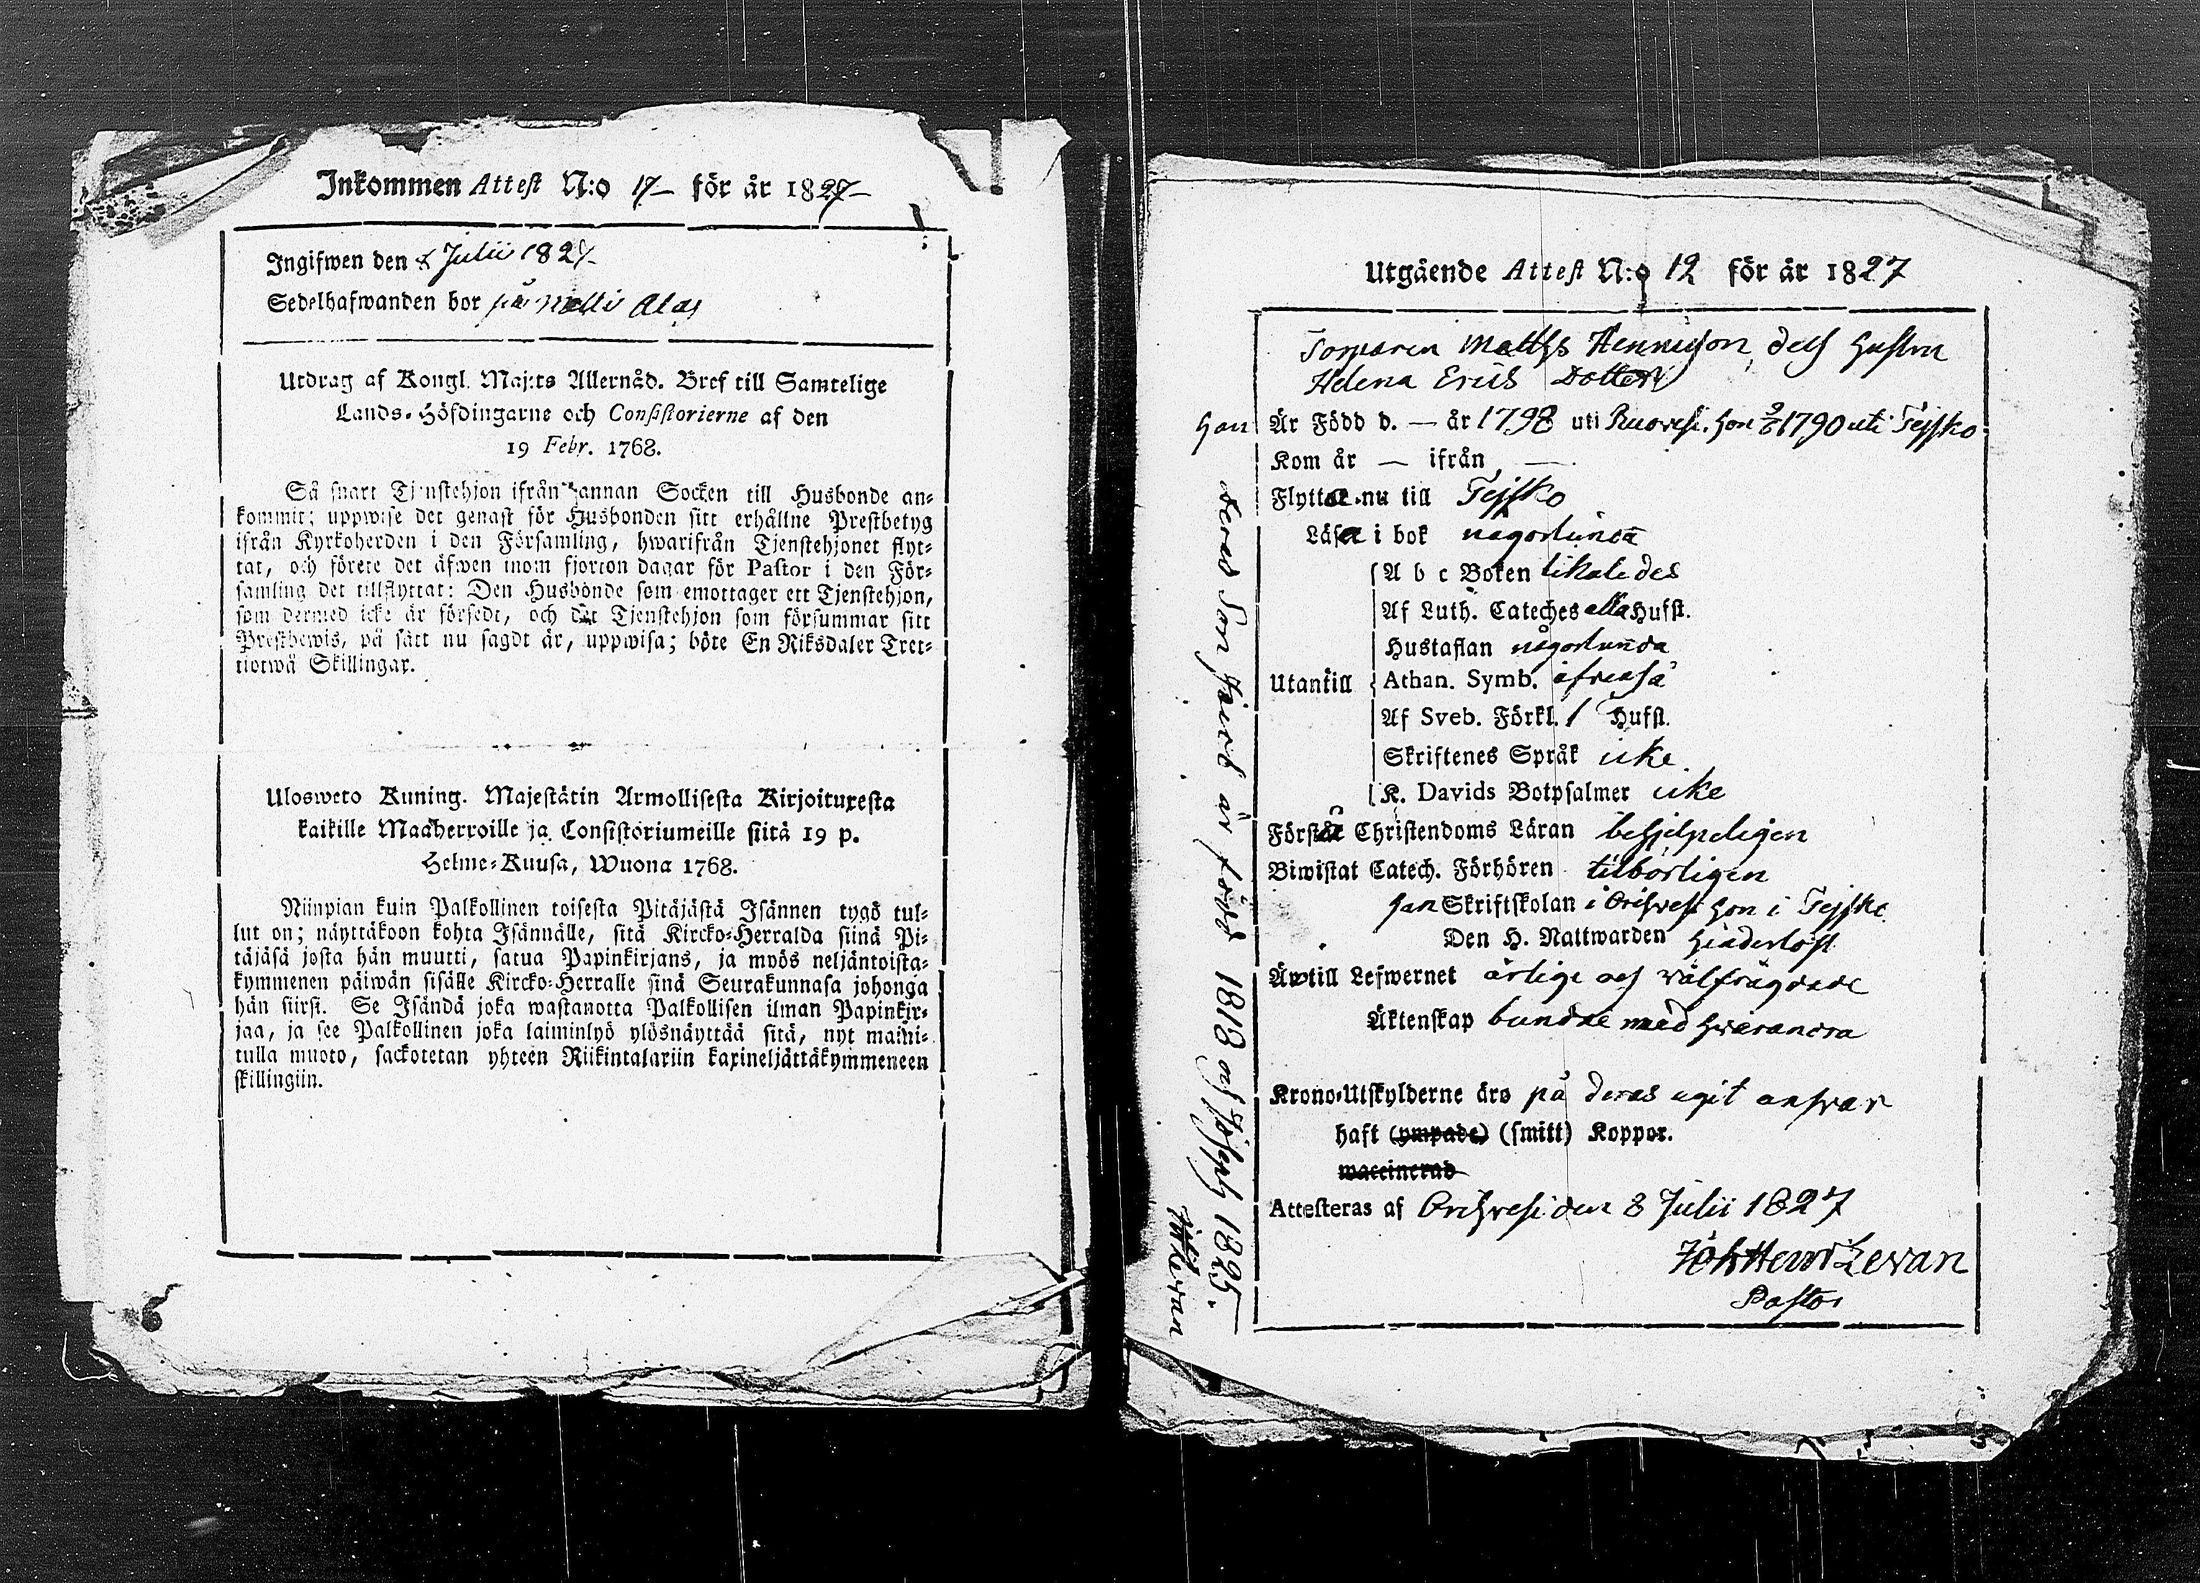 Inkommen Attest N:o 17 för år 1827
Ingifwen den 8 Julii 1827
Sedelhafwanden bor på Alas
Utdrag af Kongl. Maj:ts Allernåd. Bref till Samtelige
Lands-Höfdingarne och Consistorierne af den
19 Febr. 1768.
Så snart Tjenstehjon ifrån annan Socken till Husbonde an-
kommit; uppwise det genast för Husbonden sitt erhållne Prestbetyg
ifrån Kyrkoherden i den Församling, hwarifrån Tjenstehjonet flyt-
tat, och förete det äfwen inom fjorton dagar för Pastor i den För-
samling det tillflyttat: Den Husbonde som emottager ett Tjenstehjon,
som dermed icke är försedt, och det Tjenstehjon som försummar sitt
Prestbewis, på sätt nu sagdt är, uppwisa; böte En Riksdaler Tret-
tiotwå Skillingar.
Ulosweto Kuning. Majestätin Armollisesta Kirjoituxesta
kaikille Maaherroille ja Consistoriumeille siitä 19 p.
Helme-Kuusa, Wuona 1768.
Niinpian kuin Palkollinen toisesta Pitäjästä Isännen tygö tul-
lut on; näyttäkoon kohta Isännälle, sitä Kircko-Herralda siinä Pi-
täjäsä josta hän muutti, saatua Papinkirjans, ja myös neljäntoista-
kymmenen päiwän sisälle Kircko-Herralle siinä Seurakunnasa johonga
hän siirsi. Se Isändä joka wastanotta Palkollisen ilman Papinkir-
jaa, ja see Palkollinen joka laiminlyö ylösnäyttää sitä, nyt maini-
tulla muoto, sackotetan yhteen Riikintalariin kaxineljättäkymmeneen
skillingiin.
Utgående Attest N:o 12 för år 1827
Torparen Matths Hennicson, dess hustru
Helena Erics Dotter
han Är Född d. — år 1798 uti Ruovesi. hon 9/2 1790 uti Tejsko
Kom år — ifrån —
Flytta nu till Tejsko
Läsa i bok någorlunda
A b c Boken likaledes
Af Luth. Cateches alla Hufst.
Hustaflan någorlunda
Utantill Athan. Symb. äfvenså
Af Sveb. Förkl. 1 Hufst.
Skriftenes Språk icke
K. Davids Botpsalmer icke
Förstå Christendoms Läran behjelpeligen
Biwistat Catech. Förhören tilbörligen
han Skriftskolan i Orihvesi hon i Tejsko
Den H. Nattwarden hinderlöst
Äro till Lefwernet ärlige och välfrägdade
Äktenskap bundne med hvarandra
Krono-Utskylderne äro på deras egit answar
haft (ympade) (smitt) Koppor.
waccinerad
Attesteras af Orihvesi den 8 Julii 1827
Joh Henr Levan
Pastor
deras Son Jacob är född 1818 och Joseph 1825.
JHLevan